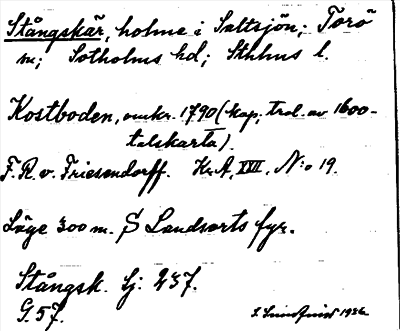 Stångskär, holme i Saltsjön; Torö
sn; Sotholms hd; Sthlms l.
Kostboden, omkr. 1790 (kop; trol. av 1600-
talskarta).
F. R. v. Friesendorff. Kr. A, XVII, N:o 19.
Läge 300 m. S Landsorts fyr.
Stångsk. Sj: 237.
G. 57.
1936